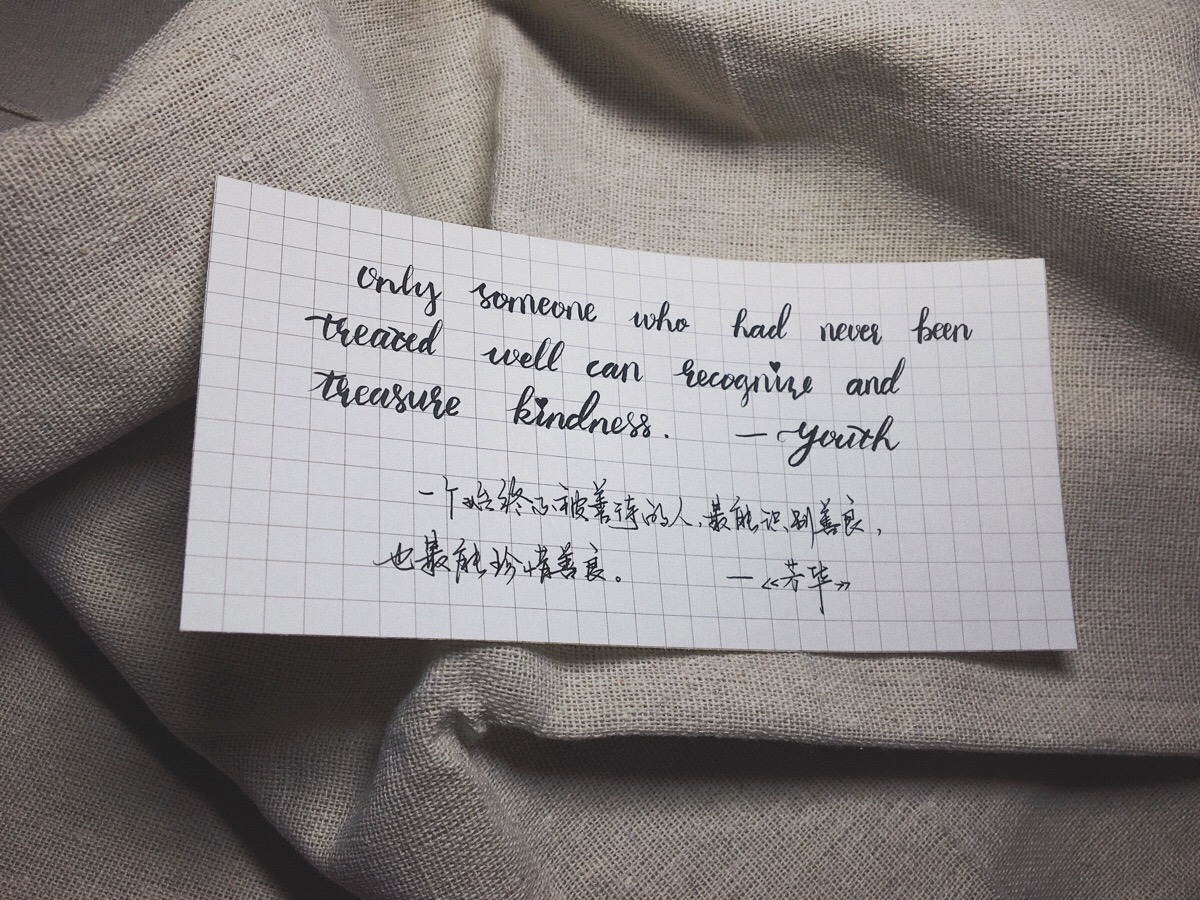 only someone who had never been
treated well can recognize and
treasure kindness. — Youth
一个始终不被善待的人,最能识别善良,
也最能珍惜善良。 —《芳华》